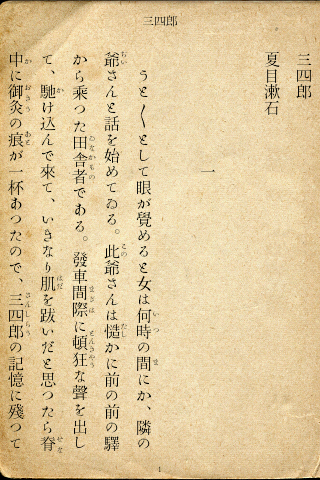 三四郎
三四郎
夏目漱石
一
うと〳〵として眼が覺めると女は何時の間にか、隣の
爺さんと話を始めてゐる。此爺さんは慥かに前の前の驛
から乘つた田舎者である。發車間際に頓狂な聲を出し
て、馳け込んで來て、いきなり肌を跋いだと思つたら脊
中に御灸の痕が一杯あつたので、三四郎の記憶に殘つて
1